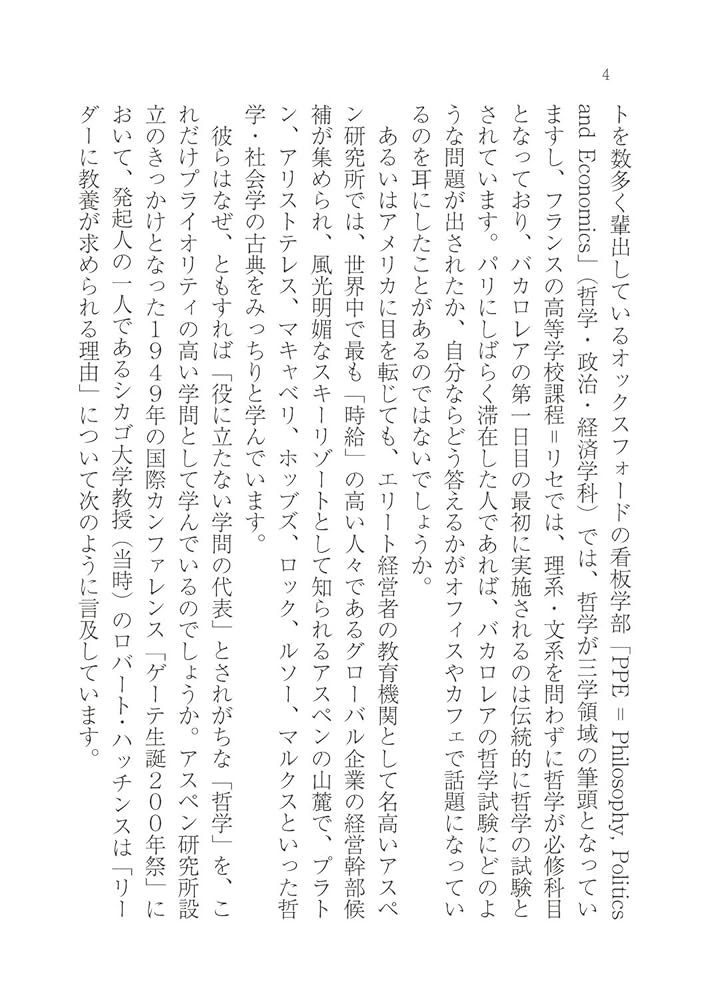 4
トを数多く輩出しているオックスフォードの看板学部「PPE = Philosophy, Politics
and Economics」（哲学・政治・経済学科）では、哲学が三学領域の筆頭となってい
ますし、フランスの高等学校課程＝リセでは、理系・文系を問わずに哲学が必修科目
となっており、バカロレアの第一日目の最初に実施されるのは伝統的に哲学の試験と
されています。パリにしばらく滞在した人であれば、バカロレアの哲学試験にどのよ
うな問題が出されたか、自分ならどう答えるかがオフィスやカフェで話題になってい
るのを耳にしたことがあるのではないでしょうか。
　あるいはアメリカに目を転じても、エリート経営者の教育機関として名高いアスペ
ン研究所では、世界中で最も「時給」の高い人々であるグローバル企業の経営幹部候
補が集められ、風光明媚なスキーリゾートとして知られるアスペンの山麓で、プラト
ン、アリストテレス、マキャベリ、ホッブズ、ロック、ルソー、マルクスといった哲
学・社会学の古典をみっちりと学んでいます。
　彼らはなぜ、ともすれば「役に立たない学問の代表」とされがちな「哲学」を、こ
れだけプライオリティの高い学問として学んでいるのでしょうか。アスペン研究所設
立のきっかけとなった１９４９年の国際カンファレンス「ゲーテ生誕２００年祭」に
おいて、発起人の一人であるシカゴ大学教授（当時）のロバート・ハッチンスは「リー
ダーに教養が求められる理由」について次のように言及しています。